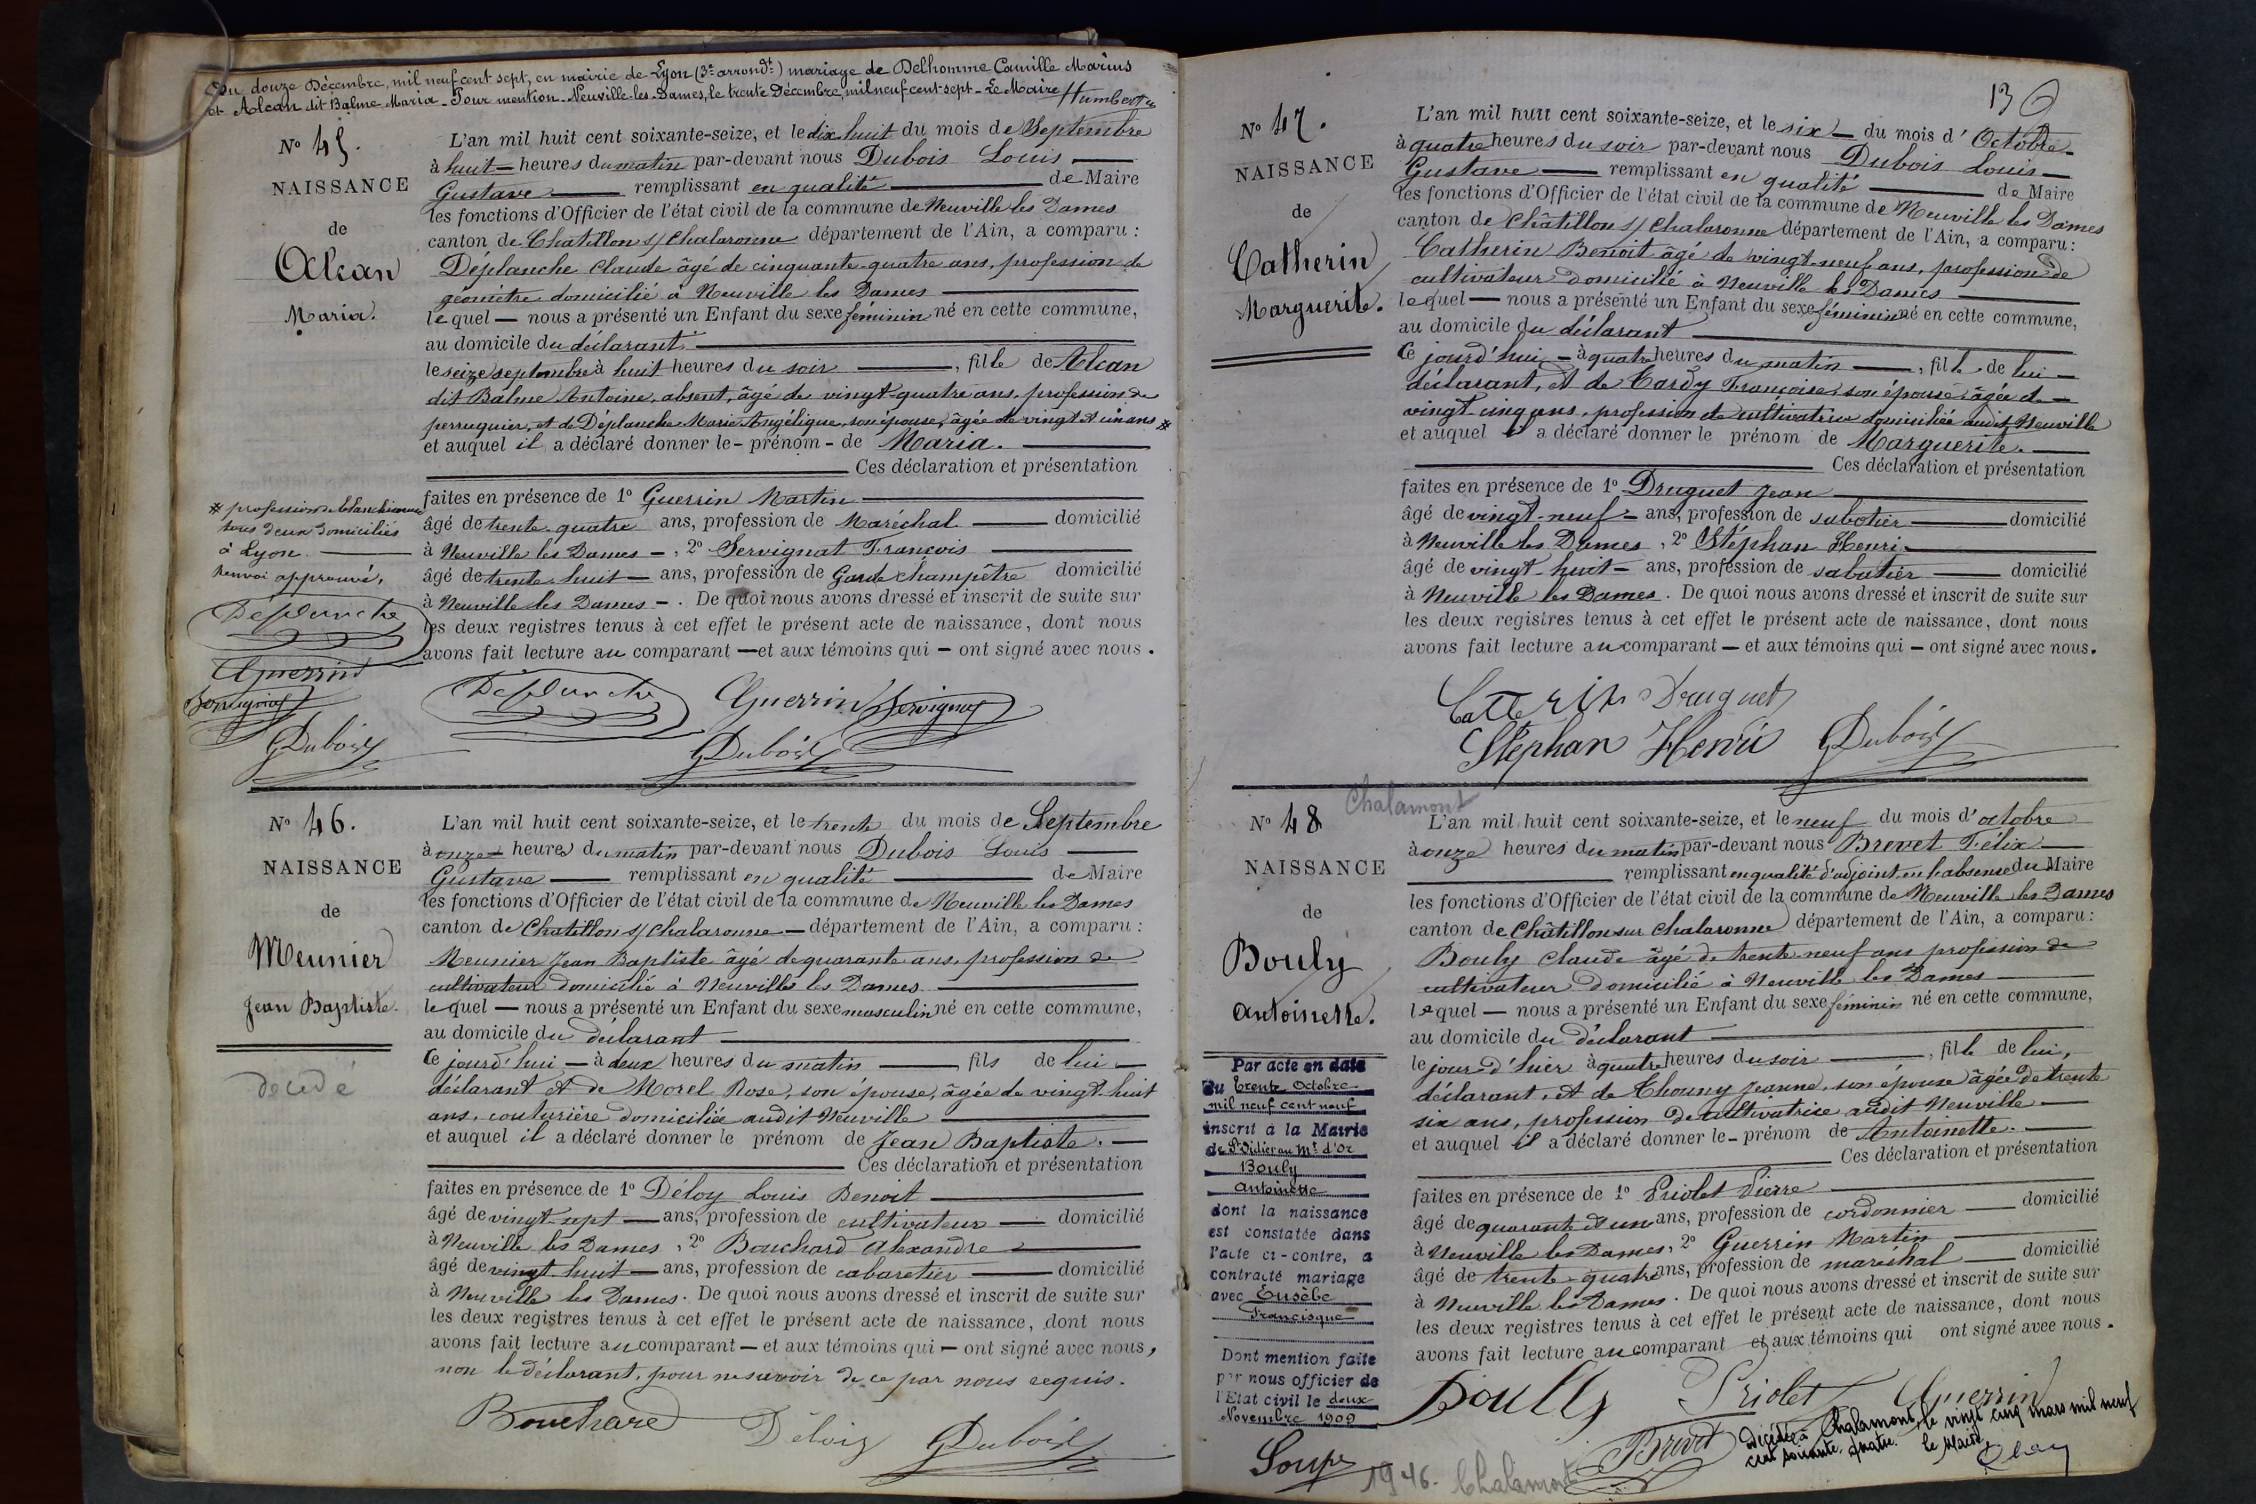 Du douze Décembre, mil neuf cent sept, en mairie de Lyon (3e arrondt) mariage de Delhomme Camille Marius
et Alcan dit Balme Maria. Pour mention. Neuville-les-Dames, le trente Décembre, mil neuf cent sept. Le Maire Humbert
No 45.
NAISSANCE
de
Alcan
Maria.
L'an mil huit cent soixante-seize, et le dix huit du mois de Septembre
à huit heures du matin par-devant nous Dubois Louis
Gustave remplissant en qualité de Maire
les fonctions d'Officier de l'état civil de la commune de Neuville les Dames
canton de Châtillon s/ Chalaronne département de l'Ain, a comparu :
Déplanche Claude âgé de cinquante-quatre ans, profession de
géomètre domicilié à Neuville les Dames
lequel nous a présenté un Enfant du sexe féminin né en cette commune,
au domicile du déclarant
le seize septembre à huit heures du soir, fille de Alcan
dit Balme Antoine, absent, âgé de vingt-quatre ans, profession de
perruquier, et de Déplanche Marie Angélique, son épouse, âgée de vingt et un ans *
et auquel il a déclaré donner le prénom de Maria.
Ces déclaration et présentation
faites en présence de 1o Guerrin Martin
âgé de trente-quatre ans, profession de Maréchal domicilié
à Neuville les Dames, 2o Servignat François
âgé de trente-huit ans, profession de Garde champêtre domicilié
à Neuville les Dames. De quoi nous avons dressé et inscrit de suite sur
les deux registres tenus à cet effet le présent acte de naissance, dont nous
avons fait lecture au comparant et aux témoins qui ont signé avec nous.
* profession de blanchisseuse
tous deux domiciliés
à Lyon.
Renvoi approuvé,
Deplanche
Guerrin
Servignat
GDubois
Deplanche Guerrin Servignat
GDubois
No 46.
NAISSANCE
de
Meunier
Jean Baptiste.
décédé
L'an mil huit cent soixante-seize, et le trente du mois de Septembre
à onze heures du matin par-devant nous Dubois Louis
Gustave remplissant en qualité de Maire
les fonctions d'Officier de l'état civil de la commune de Neuville les Dames
canton de Chatillon s/ Chalaronne département de l'Ain, a comparu :
Meunier Jean Baptiste âgé de quarante ans, profession de
cultivateur domicilié à Neuville les Dames
lequel nous a présenté un Enfant du sexe masculin né en cette commune,
au domicile du déclarant
Ce jourd'hui à deux heures du matin, fils de lui
déclarant et de Morel Rose, son épouse, âgée de vingt-huit
ans, couturière domiciliée audit Neuville
et auquel il a déclaré donner le prénom de Jean Baptiste.
Ces déclaration et présentation
faites en présence de 1o Déloy Louis Benoit
âgé de vingt-sept ans, profession de cultivateur domicilié
à Neuville les Dames, 2o Bouchard Alexandre
âgé de vingt-huit ans, profession de cabaretier domicilié
à Neuville les Dames. De quoi nous avons dressé et inscrit de suite sur
les deux registres tenus à cet effet le présent acte de naissance, dont nous
avons fait lecture au comparant et aux témoins qui ont signé avec nous,
non le déclarant, pour ne savoir de ce par nous requis.
Bouchard Déloiy GDubois
13
No 47.
NAISSANCE
de
Catherin
Marguerite.
L'an mil huit cent soixante-seize, et le six du mois d'Octobre
à quatre heures du soir par-devant nous Dubois Louis
Gustave remplissant en qualité de Maire
les fonctions d'Officier de l'état civil de la commune de Neuville les Dames
canton de Châtillon s/ Chalaronne département de l'Ain, a comparu :
Catherin Benoit âgé de vingt-neuf ans, profession de
cultivateur domicilié à Neuville les Dames
lequel nous a présenté un Enfant du sexe féminin né en cette commune,
au domicile du déclarant
Ce jourd'hui à quatre heures du matin, fille de lui
déclarant, et de Tardy Françoise, son épouse, âgée de
vingt cinq ans, profession de cultivatrice domiciliée audit Neuville
et auquel il a déclaré donner le prénom de Marguerite.
Ces déclaration et présentation
faites en présence de 1o Druguet Jean
âgé de vingt-neuf ans, profession de sabotier domicilié
à Neuville les Dames, 2o Stéphan Henri
âgé de vingt-huit ans, profession de sabotier domicilié
à Neuville les Dames. De quoi nous avons dressé et inscrit de suite sur
les deux registres tenus à cet effet le présent acte de naissance, dont nous
avons fait lecture au comparant et aux témoins qui ont signé avec nous.
Catterin Druguet
Stéphan Henri GDubois
Chalamont
No 48
NAISSANCE
de
Bouly
Antoinette.
L'an mil huit cent soixante-seize, et le neuf du mois d'octobre
à onze heures du matin par-devant nous Brevet Félix
remplissant en qualité d'adjoint en l'absense du Maire
les fonctions d'Officier de l'état civil de la commune de Neuville les Dames
canton de Châtillon sur Chalaronne département de l'Ain, a comparu :
Bouly Claude âgé de trente-neuf ans profession de
cultivateur domicilié à Neuville les Dames
lequel nous a présenté un Enfant du sexe féminin né en cette commune,
au domicile du déclarant
le jour d'hier à quatre heures du soir, fille de lui,
déclarant, et de Thouny Jeanne, son épouse âgée de trente
six ans, profession de cultivatrice audit Neuville
et auquel il a déclaré donner le prénom de Antoinette.
Ces déclaration et présentation
faites en présence de 1o Priolet Pierre
âgé de quarante et un ans, profession de cordonnier domicilié
à Neuville les Dames, 2o Guerrin Martin
âgé de trente-quatre ans, profession de maréchal domicilié
à Neuville les Dames. De quoi nous avons dressé et inscrit de suite sur
les deux registres tenus à cet effet le présent acte de naissance, dont nous
avons fait lecture au comparant et aux témoins qui ont signé avec nous.
Par acte en date
du trente Octobre
mil neuf cent neuf
inscrit à la Mairie
de St Didier au Mt d'Or
Bouly
Antoinette
dont la naissance
est constatée dans
l'acte ci-contre, a
contracté mariage
avec Eusèbe
Francisque
Dont mention faite
par nous officier de
l'Etat civil le deux
Novembre 1909
Soupe
Boully Priolet Guerrin
Brevet
Décédée à Chalamont, le vingt cinq mars mil neuf
cent soixante-quatre. le Maire,
1946. Chalamont